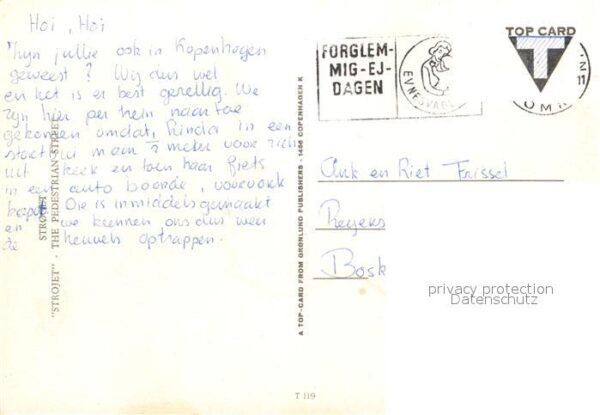 Hoi, Hoi
Zijn jullie ook in Kopenhagen
geweest? Wij dus wel
en het is er best gezellig. We
zijn hier per trein naar toe
gekomen omdat, Rinda in een
maar 2 meter voor zich
uit keek en toen haar fiets
in een auto boorde, voorvork
kapot. Die is inmiddels gemaakt
en we kunnen ons dus weer
de heuvels optrappen.
STRØJET
"STROJET" - THE PEDESTRIAN STREET
A TOP-CARD FROM GRØNLUND PUBLISHERS · 1456 COPENHAGEN K
FORGLEM-
MIG-EJ-
DAGEN
TOP CARD
T
11
en Riet
privacy protection
Datenschutz
T 119